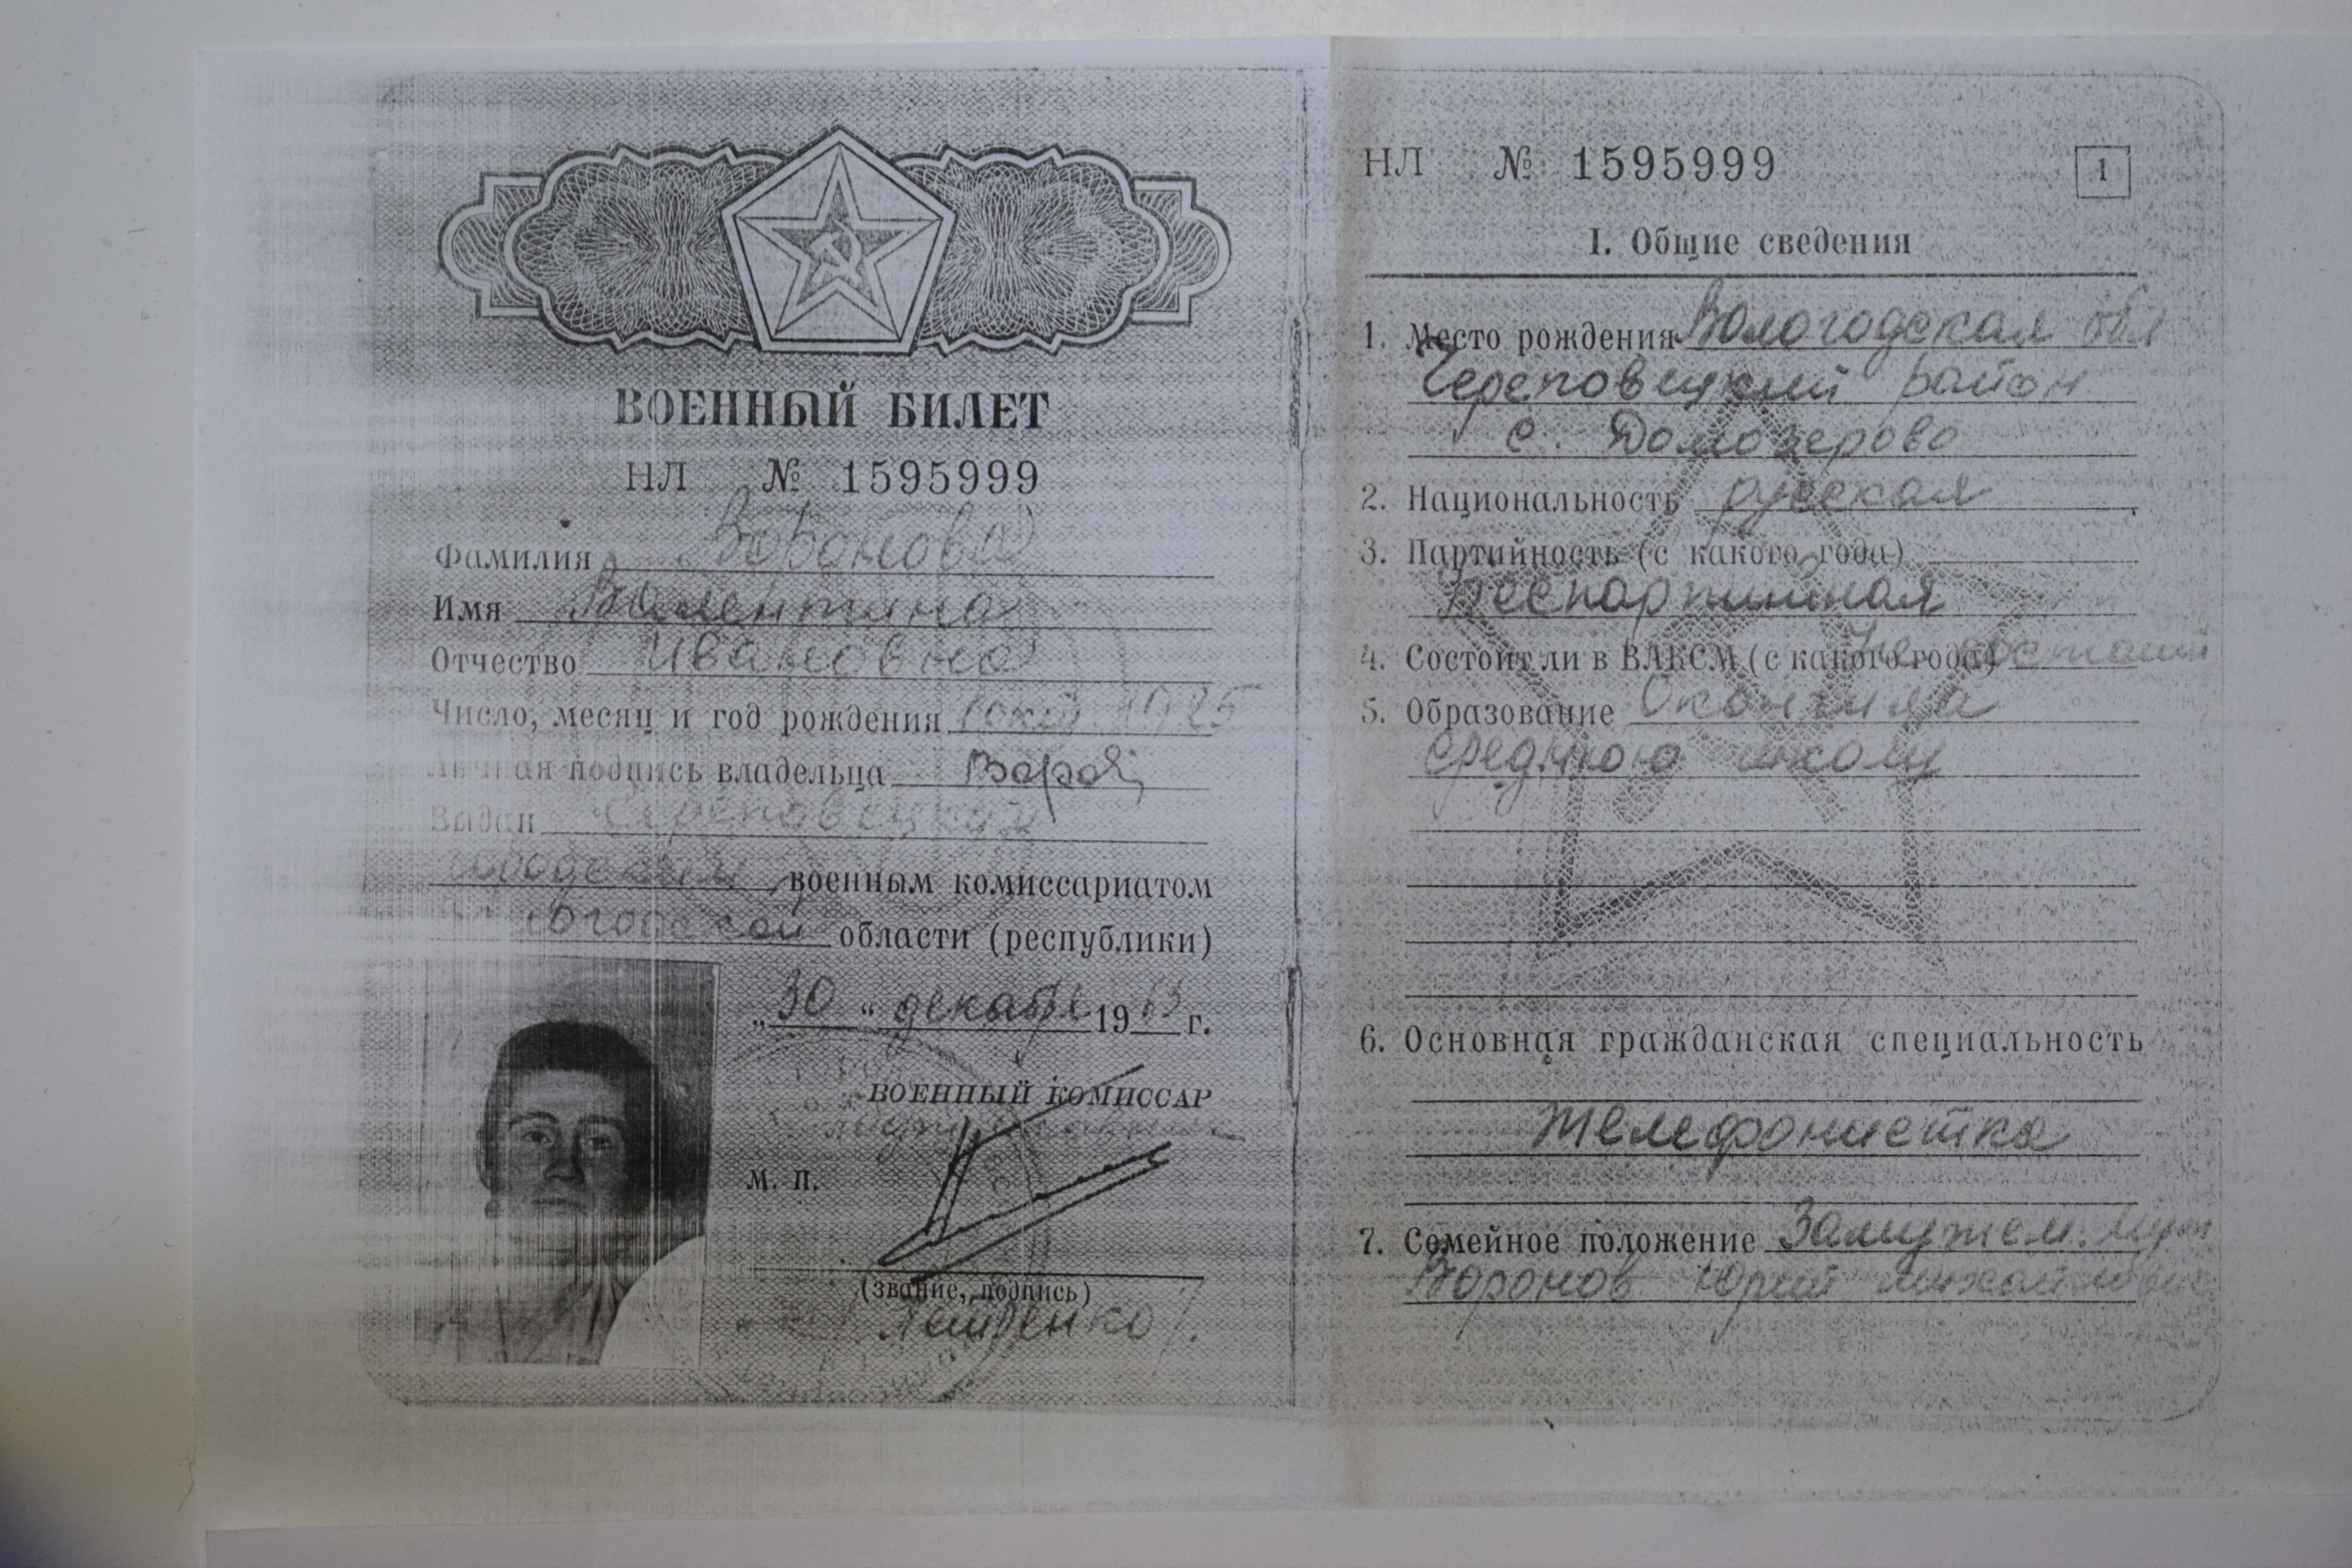 ВОЕННЫЙ БИЛЕТ
НЛ № 1595999
Фамилия Воронова
Имя Валентина
Отчество Ивановна
Число, месяц и год рождения 1925
Личная подпись владельца
Выдан Череповецким
городским военным комиссариатом
области (республики)
„30“ декабря 1963 г.
ВОЕННЫЙ КОМИССАР
М. П.
(звание, подпись)
НЛ № 1595999
1
I. Общие сведения
1. Место рождения Вологодская обл
Череповецкий район
с. Домозерово
2. Национальность русская
3. Партийность (с какого года)
Беспартийная
4. Состоит ли в ВЛКСМ (с какого года) Не
5. Образование Окончила
среднюю школу
6. Основная гражданская специальность
Телефонистка
7. Семейное положение Замужем. Муж
Воронов Юрий Михайлович